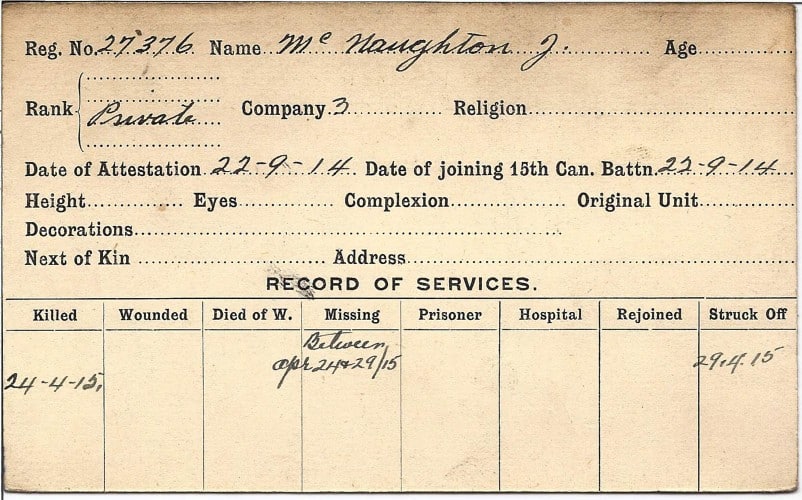 Reg. No. 27376 Name Mc Naughton J. Age
Rank Private Company 3 Religion
Date of Attestation 22-9-14 Date of joining 15th Can. Battn. 22-9-14
Height Eyes Complexion Original Unit
Decorations
Next of Kin Address
RECORD OF SERVICES.
Killed Wounded Died of W. Missing Prisoner Hospital Rejoined Struck Off
Between
24-4-15. apr 24 & 29/15 29.4.15